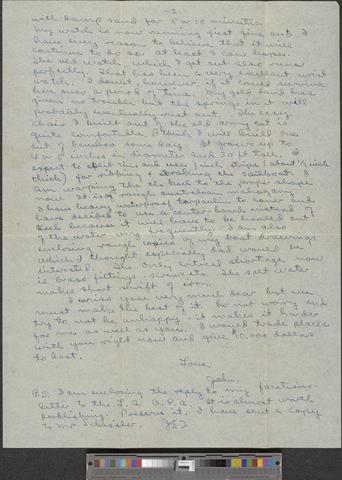 -2-
with damp sand for 5 or 10 minutes.
My watch is now running just fine and I
have every reason to believe that it will
continue to do so. At least I can hope.
The old watch which I got out also runs
perfectly. That has been a very excellent wrist
watch. I doubt, however, if it could survive
here over a period of time. My gold band has
given no trouble but the springs in it will
probably eventually rust out. The easy
chair I built out of the old army cot is
quite comfortable. I think I will build one
out of bamboo some day. It grows up to
4 or 5 inches in diameter and 30 ft tall. I
expect to split this and use 1 inch strips (about 1/4 inch
thick) for ribbing & the sailboat. I
am warping the keel to the proper shape
now. It is of rough Australian mahogany.
I have heavy waterproof tarpaulin to cover and
have decided to use a center board instead of
keel because it will have to be hauled out
of the water very frequently. I am also
enclosing rough copies of my boat drawings
which I thought especially Dad would be
interested. The only critical shortage now
is brass fittings - screws etc. The salt water
makes short shrift of iron.
I miss you very much dear but we
must make the best of it. Do not worry and
try to not be unhappy - it makes it harder
for me as well as you. I would trade places
with you right now and give 10,000 dollars
to boot.
Love,
John.
P.S. I am enclosing the reply to my facetious
letter to the L.A. O.P.A. It is almost worth
publishing. Preserve it. I have sent a copy
to Mr.